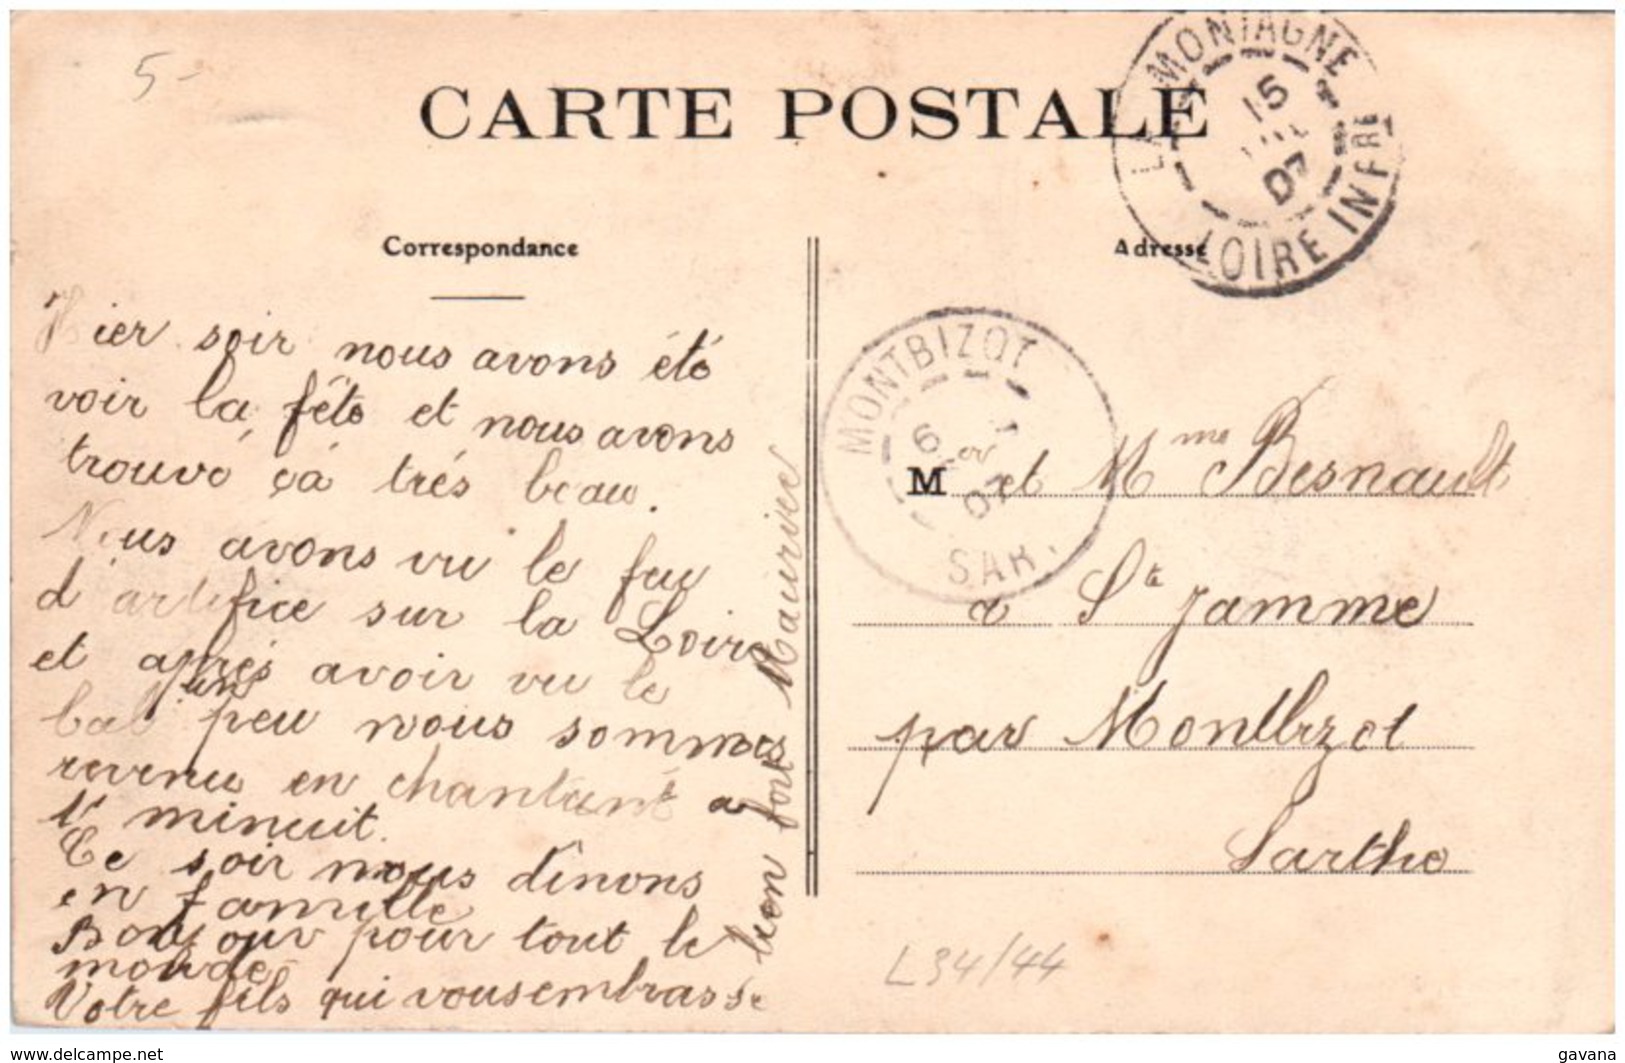 5-
CARTE POSTALE
LA MONTAGNE
15
07
LOIRE INFRE
Correspondance
Adresse
Hier soir nous avons été
voir la fête et nous avons
trouvé çá trés beau.
Nous avons vu le feu
d'artifice sur la Loire
et aprés avoir vu le
bal un peu nous sommes
revenu en chantant a
minuit.
Ce soir nous dînons
en famille
Bonjour pour tout le
monde
Votre fils qui vous embrasse
bien fort Maurice
MONTBIZOT
6
07
SAR.
Mer et Mme Besnault
a Ste Jamme
par Montbizot
Sarthe
L34/44
delcampe.net
gavana